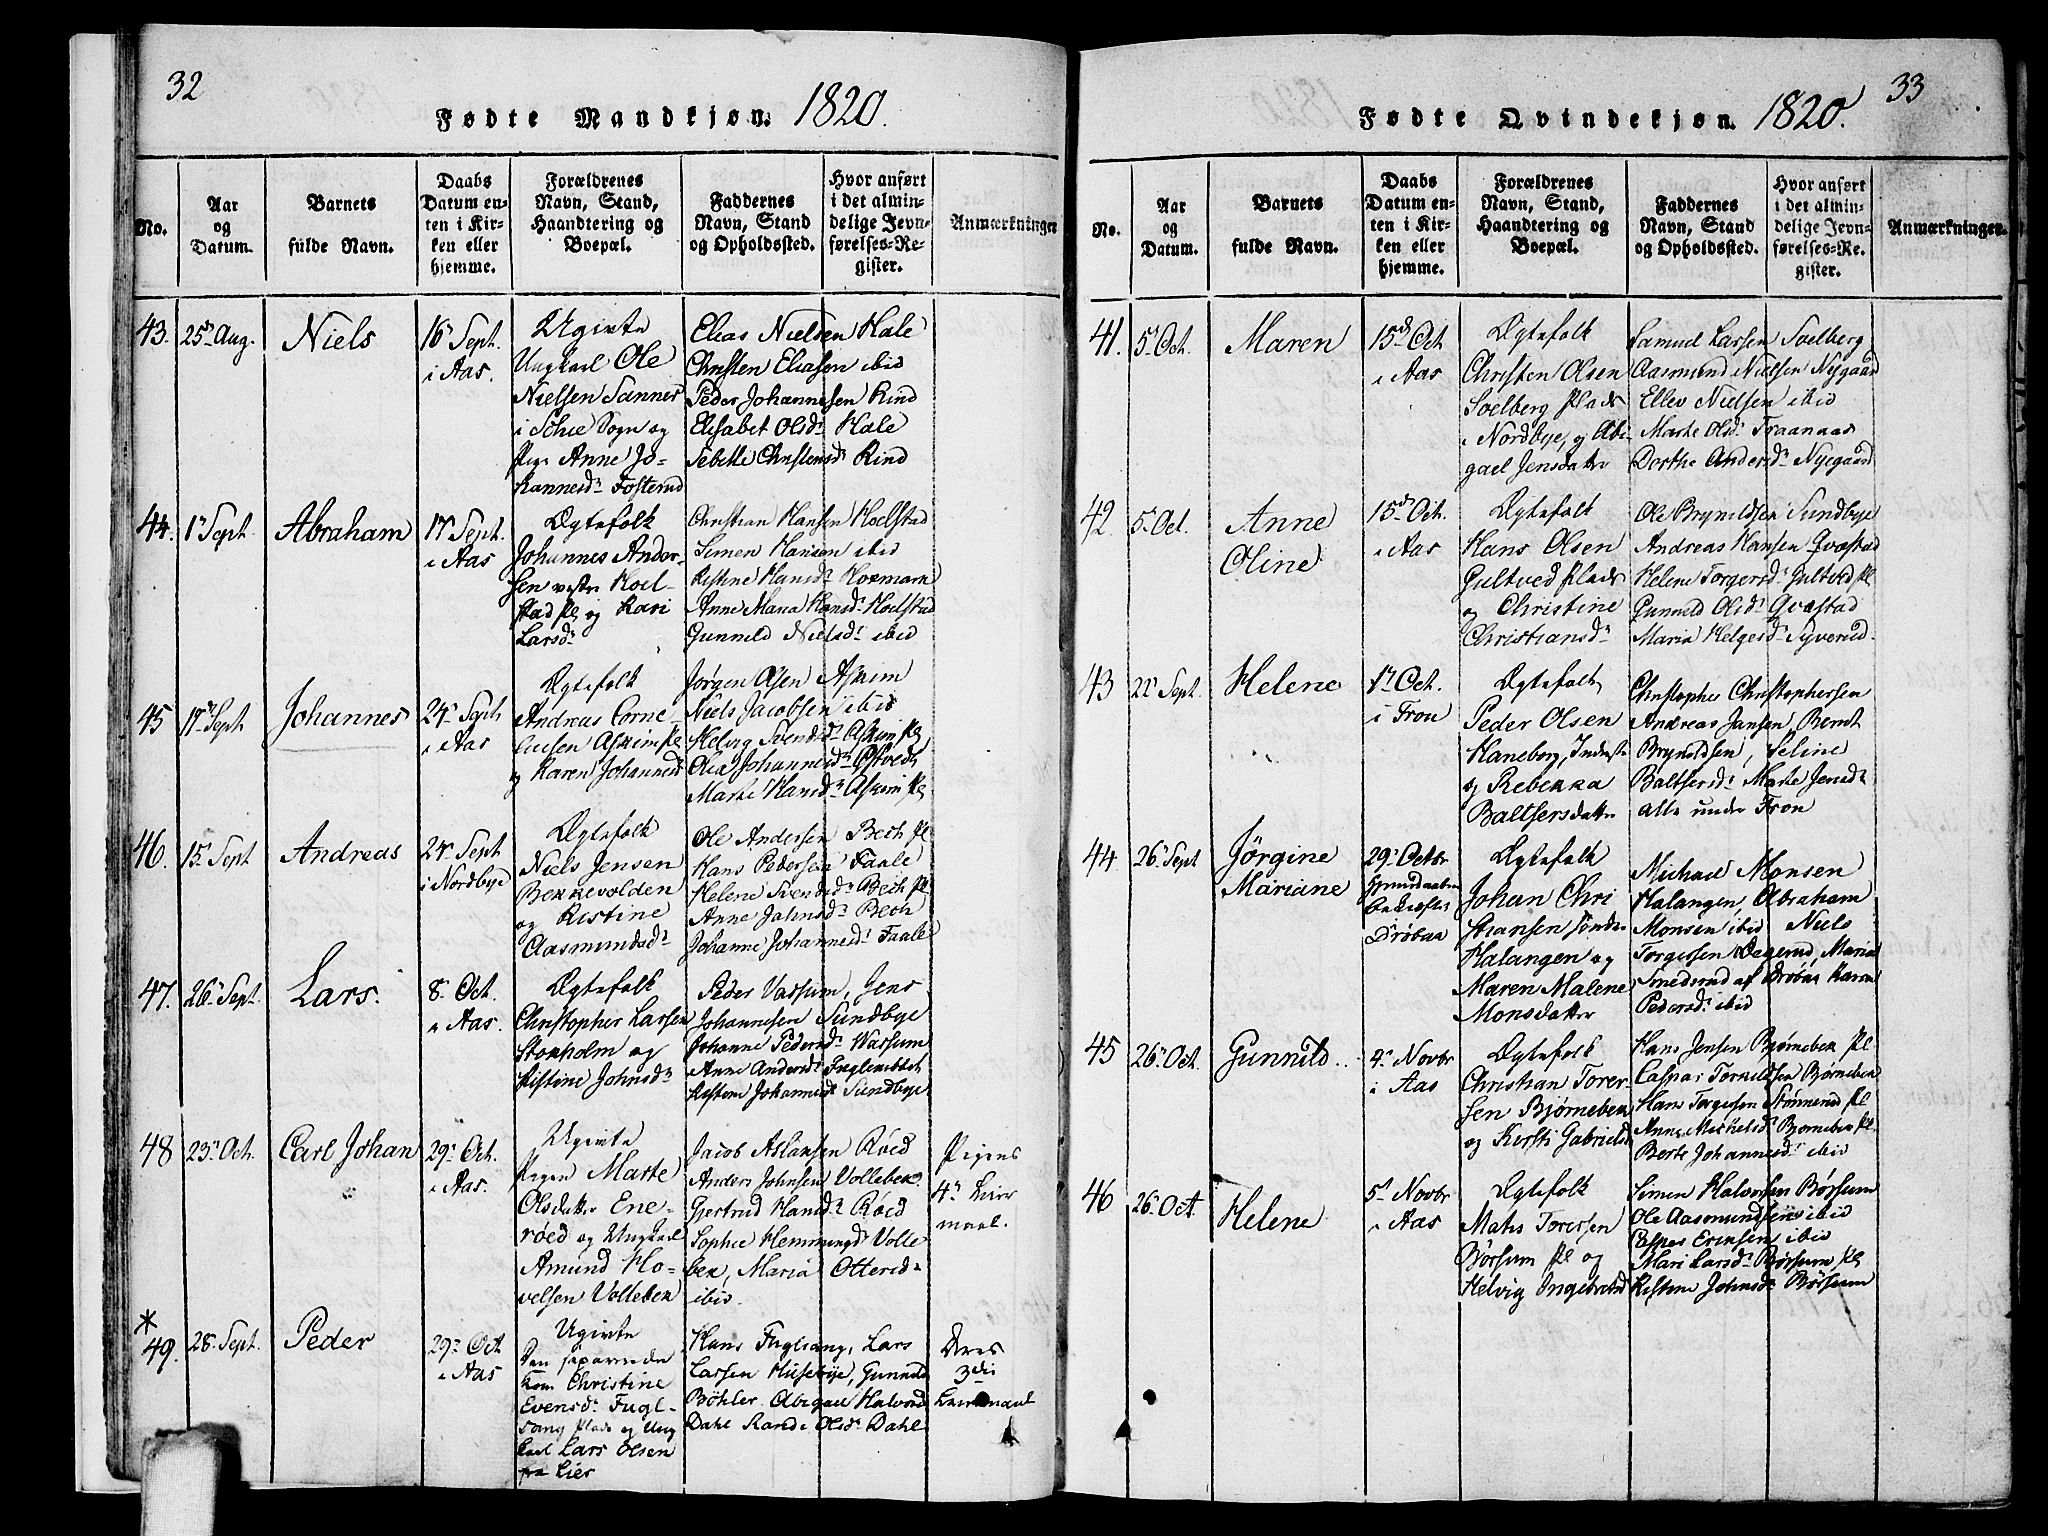 32
Fødte Mandkjøn. 1820.
No.
Aar
og
Datum.
Barnets
fulde Navn.
Daabs
Datum en-
ten i Kir-
ken eller
hjemme.
Forældrenes
Navn, Stand,
Haandtering og
Boepæl.
Faddernes
Navn, Stand
og Opholdssted.
Hvor anført
i det almin-
delige Jevn-
førelses-Re-
gister.
Anmærkninger
43.
25de Aug.
Niels
16 Sept.
i Aas.
Ugivte
Ungkarl Ole
Nielsen Sanner
i Schie Sogn og
Pige Anne Jo-
hannesdr Fosterud
Elias Nielsen Hale
Christen Eliasen ibid
Peder Johannesen Rind
Elisabet Olsdr Hale
Sebelle Christensdr Rind
44.
1 Sept.
Abraham
17 Sept.
i Aas
Ægtefolk
Johannes Ander-
sen vestre Hoel-
stad pl og Kari
Larsdr
Christian Hansen Hoelstad
Simen Hansen ibid
Kistine Hansdr Horsmark
Anne Maria Hansdr Hoelstad
Gunnild Nielsdr ibid
45
17 Sept
Johannes
24 Sept
i Aas
Ægtefolk
Andreas Corne-
liusen Askim pl
og Karen Johannesd
Jørgen Olsen Askim
Niels Jacobsen ibid
Helvig Svendsd Askim pl
Olea Johannesdr Østvedt
Marte Hansdr Askim pl
46.
15 Sept
Andreas
24 Sept
i Nordbye
Ægtefolk
Niels Jensen
Bekkevolden
og Kistine
Aasmundsdr
Ole Andersen Bech pl
Hans Pedersen Faale
Helene Svendsdr Bech pl
Anne Jahnsdr Bech
Johanne Johannesdr Faale
47.
26 Sept.
Lars.
8 Oct.
i Aas.
Ægtefolk
Christopher Larsen
Stokholm og
Kistine Johnsdr
Peder Varsum, Jens
Johannesen Sundbye
Johanne Pedersdr Warsum
Anne Andersdr Fuglesittet
Kistene Johannesdr Sundbye
48
23 Oct.
Carl Johan
29 Oct.
i Aas.
Ugivte
Pigen Marte
Olsdatter Ene-
røed og Ungkarl
Amund Ho-
velsen Vollebek
Jacob Aslansen Røed
Anders Johnsen Vollebek.
Gjertrud Hansdr Røed
Sophie Hemmingdr Volle
bek, Maria Ottersdr
ibid.
Pigens
4de Leier
maal.
*
49.
28 Sept.
Peder
29 Oct
i Aas
Ugivte
Den separerede
Kone Christine
Evensdr Fugl-
sang plads og Ung
karl Lars Olsen
fra Lier
Hans Fuglsang, Lars
Larsen Husebye, Gunnild
Bøhler. Abigael Halvord
Dahl Randi Olsdr Dahl
Deres
3die
Leiermaal
33
Fødte Qvindekjøn. 1820.
No.
Aar
og
Datum.
Barnets
fulde Navn.
Daabs
Datum en-
ten i Kir-
ken eller
hjemme.
Forældrenes
Navn, Stand,
Haandtering og
Boepæl.
Faddernes
Navn, Stand
og Opholdssted.
Hvor anført
i det almin-
delige Jevn-
førelses-Re-
gister.
Anmærkninger.
41.
5 Oct.
Maren
15d Oct
i Aas
Ægtefolk
Christen Olsen
Soelberg plads
i Nordbye, og Abi-
gael Jensdatter
Samuel Larsen Soelberg
Aasmund Nielsen Nygaard
Ellev Nielsen ibid
Marte Olsdr Fraanaas
Dorthe Andersdr Nyegaard
42
5 Oct.
Anne
Oline
15d Oct.
i Aas
Ægtefolk
Hans Olsen
Gultved plads
og Christine
Christiansdr
Ole Brynildsen Sundbye
Andreas Hansen Qvæstad
Helene Torgersdr Gultved pl
Gunnild Olsdr Qvæstad
Maria Helgesdr Syverud
43
22 Sept.
Helene
1 Oct.
i Fron
Ægtefolk
Peder Olsen
Haneborg,
og Rebekka
Baltsersdatter
Christopher Christophersen
Andreas Jansen, Berndt
Brynildsen, Seline
Baltsersdr Marte Jensdr
alle under Fron
44
26 Sept
Jørgine
Mariane
29 Octbr
Drøbak
Ægtefolk
Johan Chri
stiansen søndre
Halangen og
Maren Malene
Monsdatter
Michael Monsen
Halangen, Abraham
Monsen ibid Niels
Torgersen Degerud, Maria
Smedsrud af Drøbak Karen
Pedersdr ibid
45
26 Oct.
Gunnild..
4 Novbr
i Aas
Ægtefolk
Christian Torer-
sen Bjørnebek
og Kersti Gabrielsd
Hans Jensen Bjørnebek pl
Caspar Torkildsen Bjørnebek
Hans Torgersen Stønnerud pl
Anne Michelsdr Bjørnebek pl.
Berte Johannesdr ibid
46
26 Oct.
Helene
5 Novbr
i Aas
Ægtefolk
Mats Torersen
Børsum pl og
Helvig Ingebretsd
Simen Halvorsen Børsum
Ole Aasmundsen ibid
Asper Eriksen ibid
Mari Larsdr Børsum pl
Kistene Johnsdr Børsum